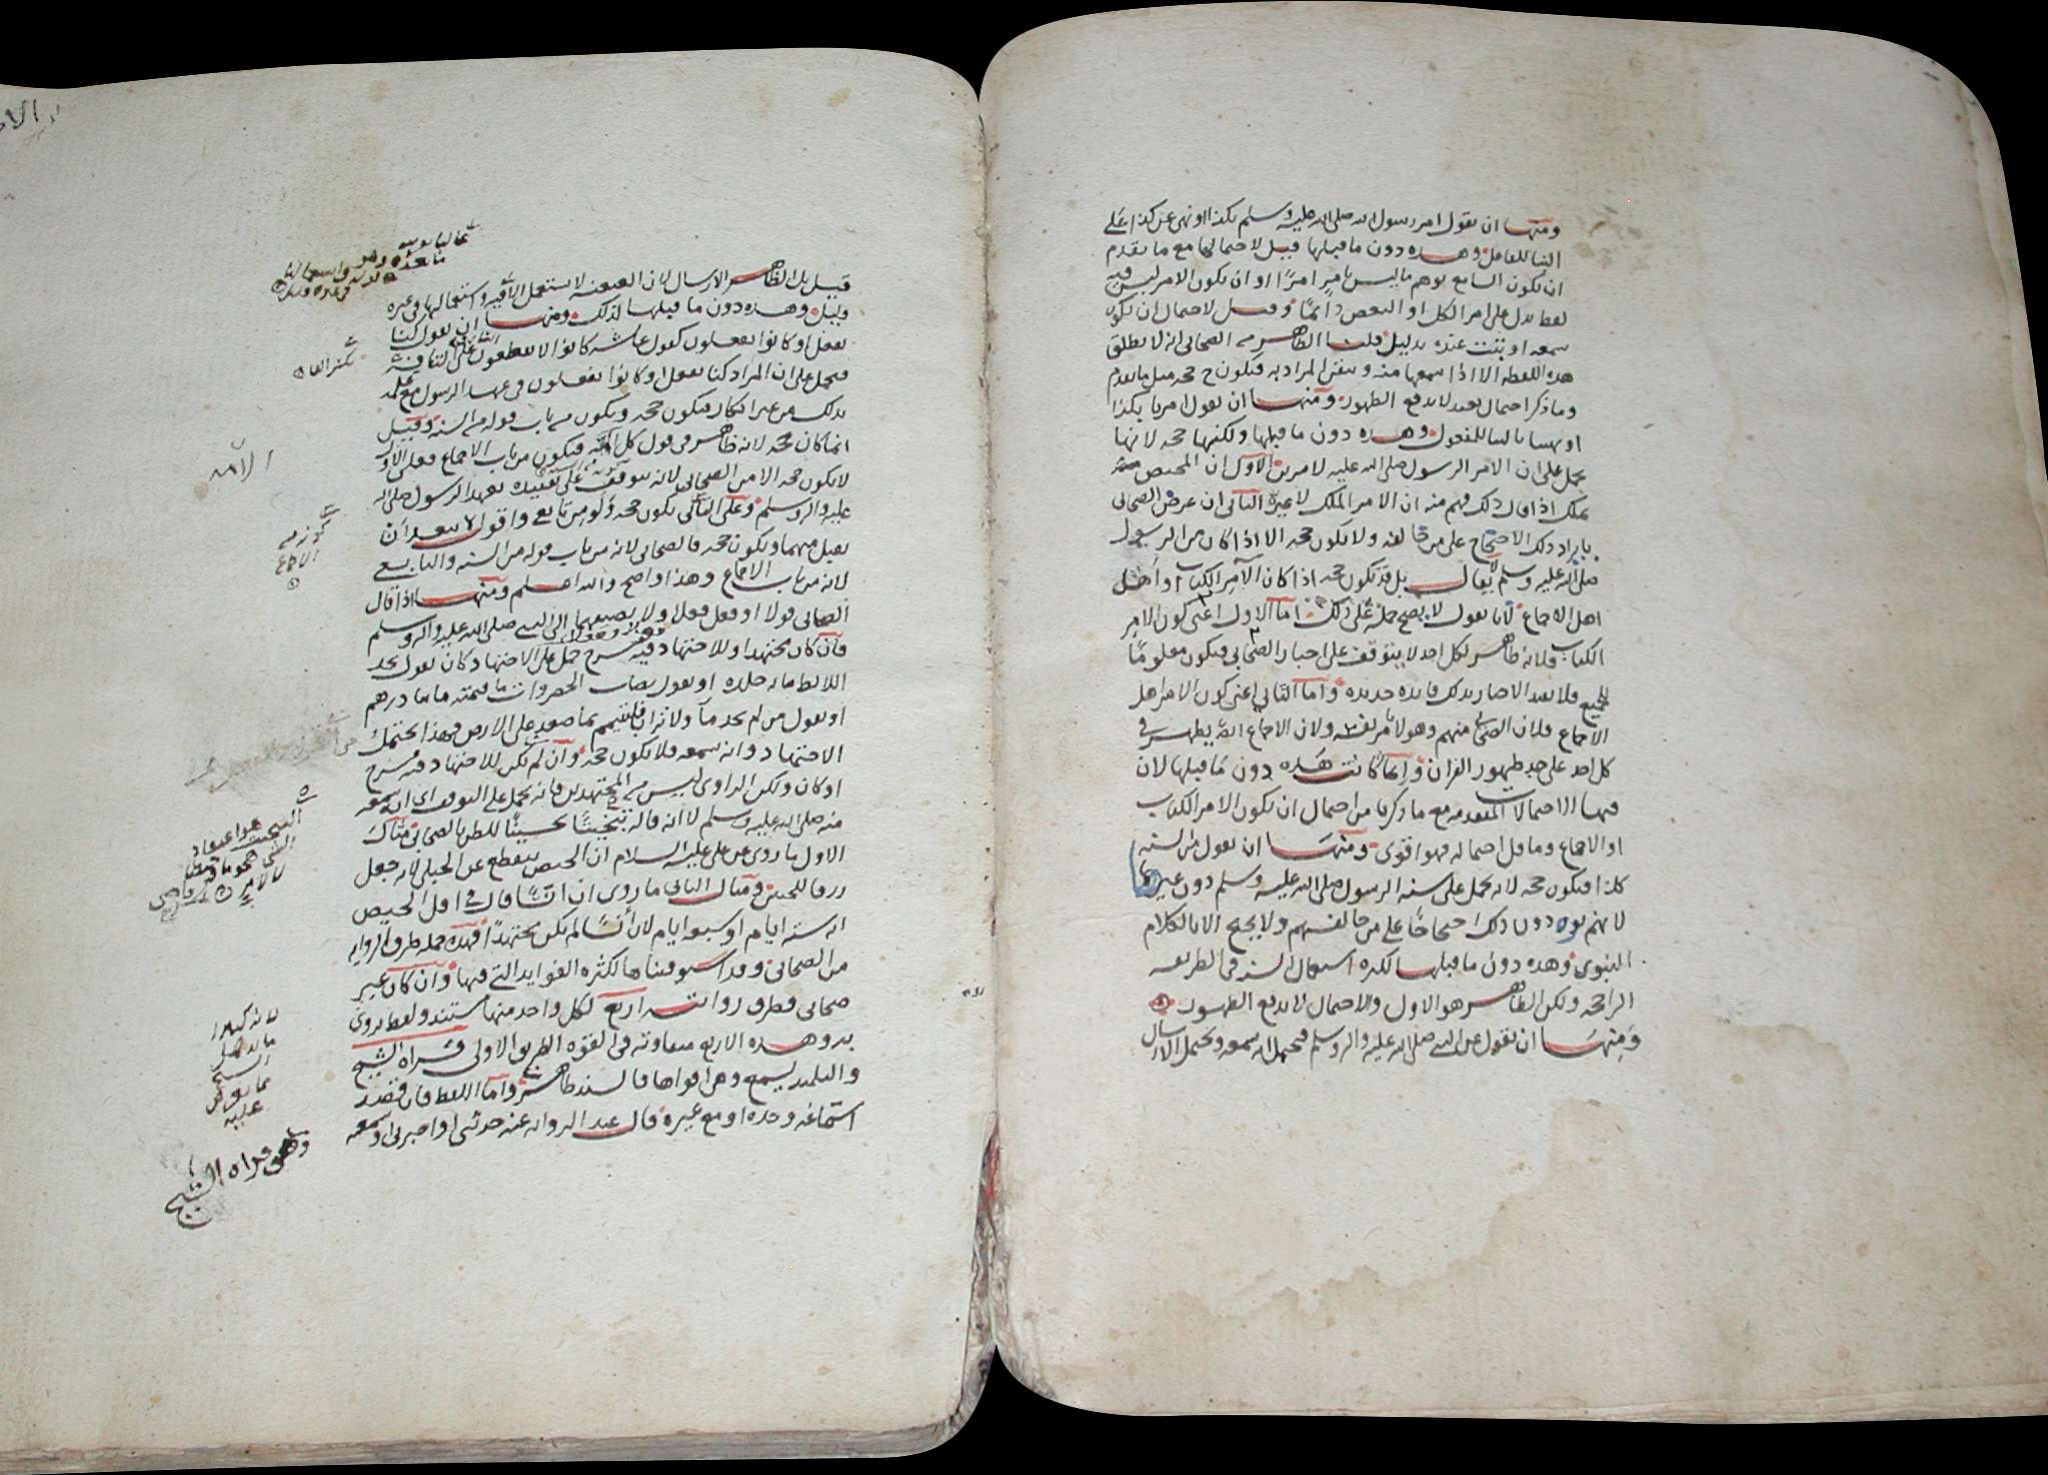 ومنها ان يقول امر رسول الله صلى الله عليه وسلم بكذا او نهى عن كذا على
البنا للفاعل وهذه دون ما قبلها قيل لاحتمالها مع ما تقدم
ان يكون السامع توهم ما ليس بامر امرًا او ان يكون الامر ليس فيه
لفظ يدل على امر الكل او البعض دائمًا وقيل لاحتمال ان يكون
سمعه او ثبت عنده بدليل قلنا الظاهر من الصحابي انه لا يطلق
هذه اللفظه الا اذا سمعها منه وتيقن المراد به فتكون ح حجه مثل ما تقدم
وما ذكر احتمال بعيد لا يدفع الظهور ومنها ان يقول امرنا بكذا
او نهينا بالبنا للمفعول وهذه دون ما قبلها ولكنها حجه لانها
تحمل على ان الامر الرسول صلى الله عليه لامرين الاول ان المختص
بملك اذا قال ذلك فهم منه ان الامر الملك لا غيره الثاني ان غرض الصحابي
بايراد ذلك الاحتجاج على من خالفه ولا يكون حجه الا اذا كان من الرسول
صلى الله عليه وسلم لا يقال بل قد يكون حجه اذا كان الآمر الكتاب او اهل
اهل الاجماع لانا نقول لا يصح حمله على ذلك اما الاول اعني كون الامر
الكتاب فلانه ظاهر لكل احد لا يتوقف على اخبار الصحابي فيكون معلومًا
للجميع فلا يفيد الاخبار بذلك فايده جديده واما الثاني اعني كون الامر اهل
الاجماع فلان الصحابي منهم وهو لا يامر نفسه ولان الاجماع ايضا يظهر في
كل احد على حد ظهور القران وانما كانت هذه دون ما قبلها لان
فيها الاحتمالات المتقدمه مع ما ذكرنا من احتمال ان يكون الامر الكتاب
او الاجماع وما قل احتماله فهو اقوى ومنها ان يقول من السنه
كذا فيكون حجه لانه يحمل على سنه الرسول صلى الله عليه وسلم دون غيرها
لانهم يوردون ذلك احتجاجًا على من خالفهم ولا يحتج الا بالكلام
النبوي وهذه دون ما قبلها لكثره استعمال السنه في الطريقه
الراجحه ولكن الظاهر هو الاول والاحتمال لا يدفع الظهور
ومنها ان يقول عن النبي صلى الله عليه واله وسلم فيحتمل انه سمعه ويحتمل الارسال
قيل بل الظاهر الارسال لان العنعنه لا تستعمل الا فيه واستعمالها في غيره
قليل وهذه دون ما قبلها لذلك ومنها ان يقول كنا
نفعل او كانوا يفعلون كقول عائشه كانوا لا يقطعون في الشي التافه
فيحمل على ان المراد كنا نفعل او كانوا يفعلون في عهد الرسول مع علمه
بذلك من غير انكار فيكون حجه ويكون من باب قوله من السنه وقيل
انما كان حجه لانه ظاهر في قول كل الامه فيكون من باب الاجماع فعلى الاول
لا يكون حجه الا من الصحابي لانه يتوقف على تقييده بعهد الرسول صلى الله
عليه واله وسلم وعلى الثاني يكون حجه ولو من تابعي واقول لا يبعد ان
يقبل منهما ويكون حجه فالصحابي لانه من باب قوله من السنه والتابعي
لانه من باب الاجماع وهذا واضح والله اعلم ومنها اذا قال
الصحابي قولا او فعل فعلا ولا يضيفهما الى النبي صلى الله عليه واله وسلم
فان كان مجتهدا وللاجتهاد فيه مسرح حمل على الاجتهاد كان يقول يحد
اللائط مايه جلده او يقول نصاب الخضروات ما قيمته مايتا درهم
او يقول من لم يجد مآ ولا ترابا فليتيمم بما صعد على الارض فهذا يحتمل
الاجتهاد وانه سمعه فلا يكون حجه وان لم يكن للاجتهاد فيه مسرح
او كان ولكن الراوي ليس من المجتهدين فانه يحمل على التوقيف اي انه سمعه
منه صلى الله عليه وسلم لا انه قاله تبخيتًا تحسينًا للظن بالصحابي مثال
الاول ما روي عن علي عليه السلام ان الحيض ينقطع عن الحبلى لانه جعل
رزقا للجنين ومثال الثاني ما روي ان انسًا قال في اقل الحيض
انه سته ايام او سبعه ايام لان أنسًا لم يكن مجتهدًا فهذه جمله طرق الروايه
من الصحابي وقد استوفيناها لكثره الفوايد التي فيها وان كان غير
صحابي فطرق روايته اربع لكل واحد منها مستند ولفظ يروى
به وهذه الاربع متفاوته في القوه الطريق الاولى قراه الشيخ
والتلميذ يسمع وهي اقواها فالسند ظاهر واما اللفظ فان قصد
استماعه وحده او مع غيره قال عند الروايه عنه حدثني او اخبرني او سمعته
كونه من
الاجماع
هو اعتقاد
الشي
لا لامر
لانه
الشيخ
عليه
وهي قراه الشيخ